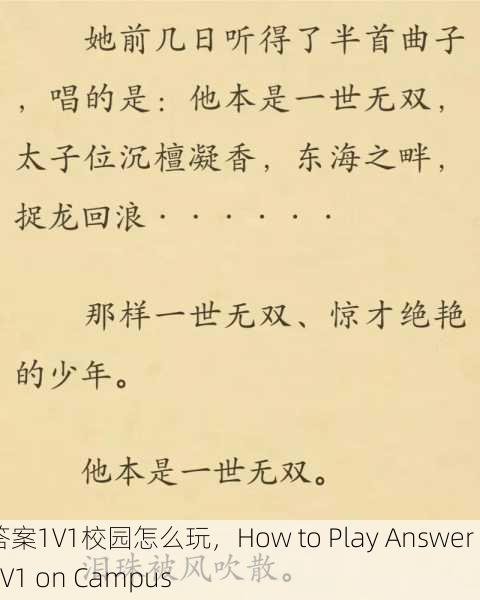 她前几日听得了半首曲子
，唱的是：他本是一世无双，
太子位沉檀凝香，东海之畔，
捉龙回浪······
那样一世无双、惊才绝艳
的少年。
他本是一世无双。
答案1V1校园怎么玩，How to Play Answer
V1 on Campus
泪珠被风吹散。